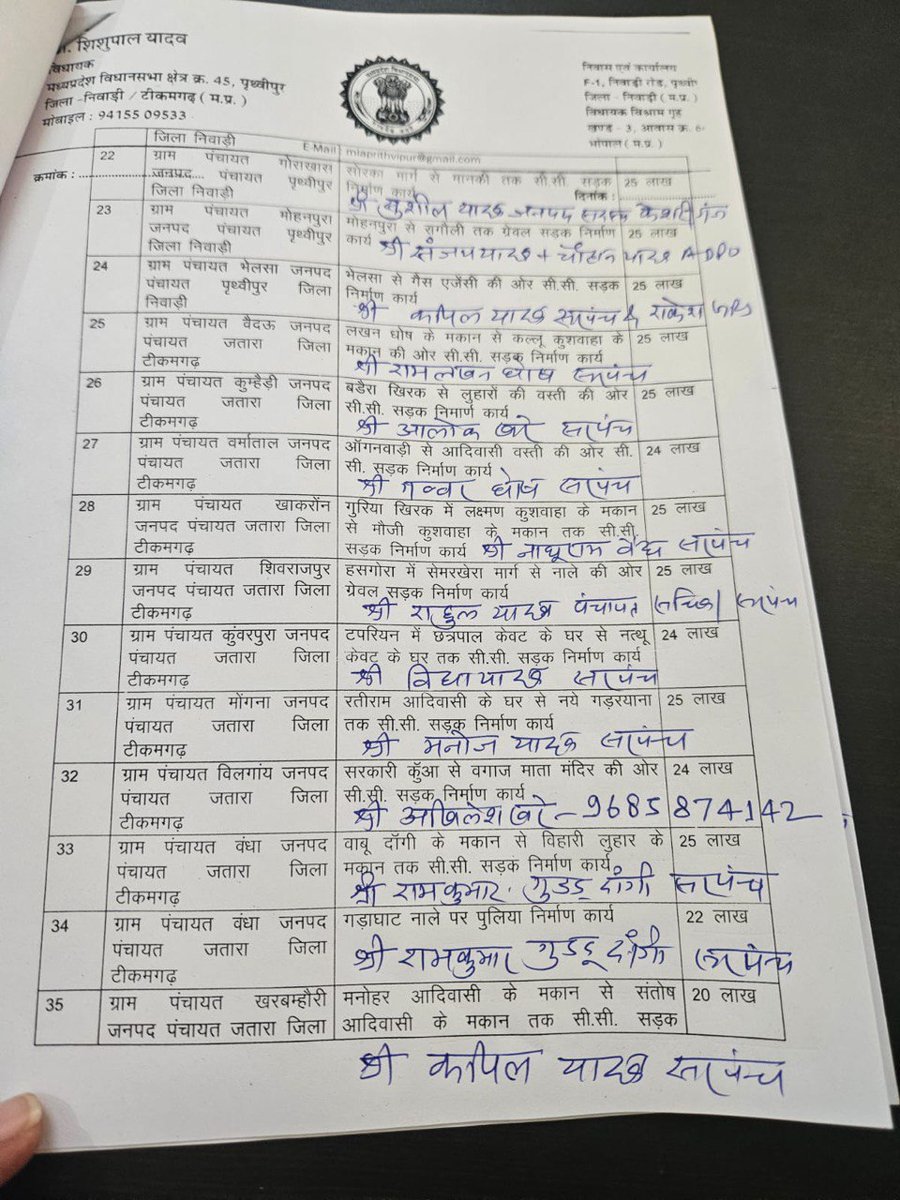 . शिशुपाल यादव
विधायक
मध्यप्रदेश विधानसभा क्षेत्र क्र. 45, पृथ्वीपुर
जिला -निवाड़ी / टीकमगढ़ ( म.प्र. )
मोबाइल : 94155 09533
निवास एवं कार्यालय
F-1, निवाड़ी रोड़, पृथ्वीपु
जिला - निवाड़ी ( म.प्र. )
विधायक विश्राम गृह
खण्ड - 3, आवास क्र. 6
भोपाल ( म.प्र. )
जिला निवाड़ी
E-Mail : mlaprithvipur@gmail.com
क्रमांक :
दिनांक :
22 ग्राम पंचायत गोराखास सोरका मार्ग से मानकी तक सी.सी. सड़क 25 लाख
जनपद पंचायत पृथ्वीपुर निर्माण कार्य
जिला निवाड़ी श्री सुशील यादव जनपद सदस्य
23 ग्राम पंचायत मोहनपुरा मोहनपुरा से रागौली तक ग्रेवल सड़क निर्माण 25 लाख
जनपद पंचायत पृथ्वीपुर कार्य
जिला निवाड़ी श्री संजय यादव + यादव
24 ग्राम पंचायत भेलसा जनपद भेलसा से गैस एजेंसी की ओर सी.सी. सड़क 25 लाख
पंचायत पृथ्वीपुर जिला निर्माण कार्य
निवाड़ी श्री कपिल यादव सरपंच & राकेश
25 ग्राम पंचायत वैदऊ जनपद लखन घोष के मकान से कल्लू कुशवाहा के 25 लाख
पंचायत जतारा जिला मकान की ओर सी.सी. सड़क निर्माण कार्य
टीकमगढ़ श्री रामलखन घोष सरपंच
26 ग्राम पंचायत कुम्हैड़ी जनपद बडैरा खिरक से लुहारों की वस्ती की ओर 25 लाख
पंचायत जतारा जिला सी.सी. सड़क निमार्ण कार्य
टीकमगढ़ श्री आलोक खरे सरपंच
27 ग्राम पंचायत वर्माताल जनपद ऑगनवाड़ी से आदिवासी वस्ती की ओर सी. 24 लाख
पंचायत जतारा जिला सी. सड़क निर्माण कार्य
टीकमगढ़ श्री घोष सरपंच
28 ग्राम पंचायत खाकरोंन गुरिया खिरक में लक्ष्मण कुशवाहा के मकान 25 लाख
जनपद पंचायत जतारा जिला से मौजी कुशवाहा के मकान तक सी.सी.
टीकमगढ़ सड़क निर्माण कार्य श्री नाथूराम वैद्य सरपंच
29 ग्राम पंचायत शिवराजपुर हसगोरा में सेमरखेरा मार्ग से नाले की ओर 25 लाख
जनपद पंचायत जतारा जिला ग्रेवल सड़क निर्माण कार्य
टीकमगढ़ श्री राहुल यादव पंचायत सचिव / सरपंच
30 ग्राम पंचायत कुंवरपुरा जनपद टपरियन में छत्रपाल केवट के घर से नत्थू 24 लाख
पंचायत जतारा जिला केवट के घर तक सी.सी. सड़क निर्माण कार्य
टीकमगढ़ श्री विद्या यादव सरपंच
31 ग्राम पंचायत मोंगना जनपद रतीराम आदिवासी के घर से नये गड़रयाना 25 लाख
पंचायत जतारा जिला तक सी.सी. सड़क निर्माण कार्य
टीकमगढ़ श्री मनोज यादव सरपंच
32 ग्राम पंचायत विलगांय जनपद सरकारी कुँआ से वगाज माता मंदिर की ओर 24 लाख
पंचायत जतारा जिला सी.सी. सड़क निर्माण कार्य
टीकमगढ़ श्री अखिलेश खरे - 9685874142
33 ग्राम पंचायत वंधा जनपद वाबू दॉगी के मकान से विहारी लुहार के 25 लाख
पंचायत जतारा जिला मकान तक सी.सी. सड़क निर्माण कार्य
टीकमगढ़ श्री रामकुमार गुड्डू दांगी सरपंच
34 ग्राम पंचायत वंधा जनपद गड़ाघाट नाले पर पुलिया निर्माण कार्य 22 लाख
पंचायत जतारा जिला
टीकमगढ़ श्री रामकुमार गुड्डू दांगी सरपंच
35 ग्राम पंचायत खरबम्हौरी मनोहर आदिवासी के मकान से संतोष 20 लाख
जनपद पंचायत जतारा जिला आदिवासी के मकान तक सी.सी. सड़क
श्री कपिल यादव सरपंच